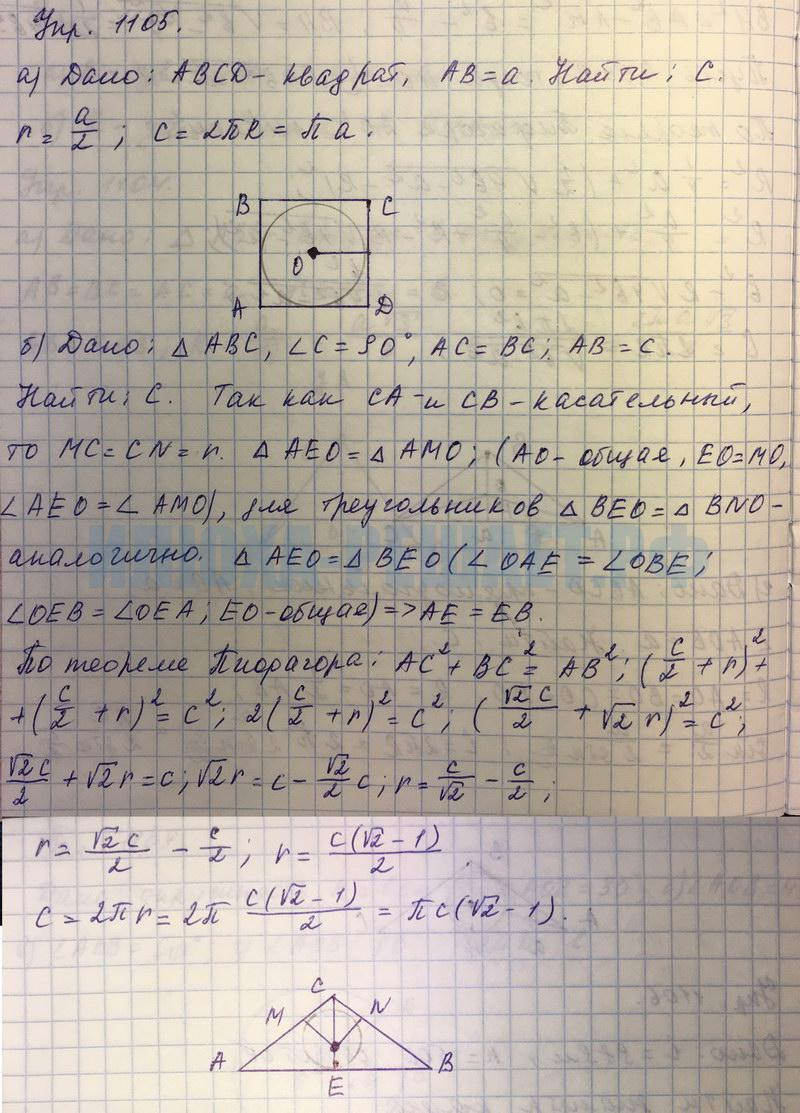 Упр. 1105.
а) Дано: ABCD - квадрат, AB = a. Найти: C.
r = a/2 ; C = 2ПR = Пa.
B C
O
A D
б) Дано: △ ABC, ∠C = 90°, AC = BC; AB = c.
Найти: C. Так как CA и CB - касательный,
то MC = CN = r. △ AEO = △ AMO; (AO - общая, EO = MO,
∠AEO = ∠ AMO), для треугольников △ BEO = △ BNO -
аналогично. △ AEO = △ BEO (∠OAE = ∠OBE;
∠OEB = ∠OEA; EO - общая) => AE = EB.
По теореме Пиорагора: AC² + BC² = AB²; (c/2 + r)² +
+ (c/2 + r)² = c²; 2(c/2 + r)² = c²; (√2 c/2 + √2 r)² = c²;
√2c/2 + √2r = c; √2r = c - √2/2 c; r = c/√2 - c/2;
r = √2 c/2 - c/2; r = c(√2 - 1)/2.
C = 2πr = 2π c(√2 - 1)/2 = πc(√2 - 1).
C
M N
A B
E